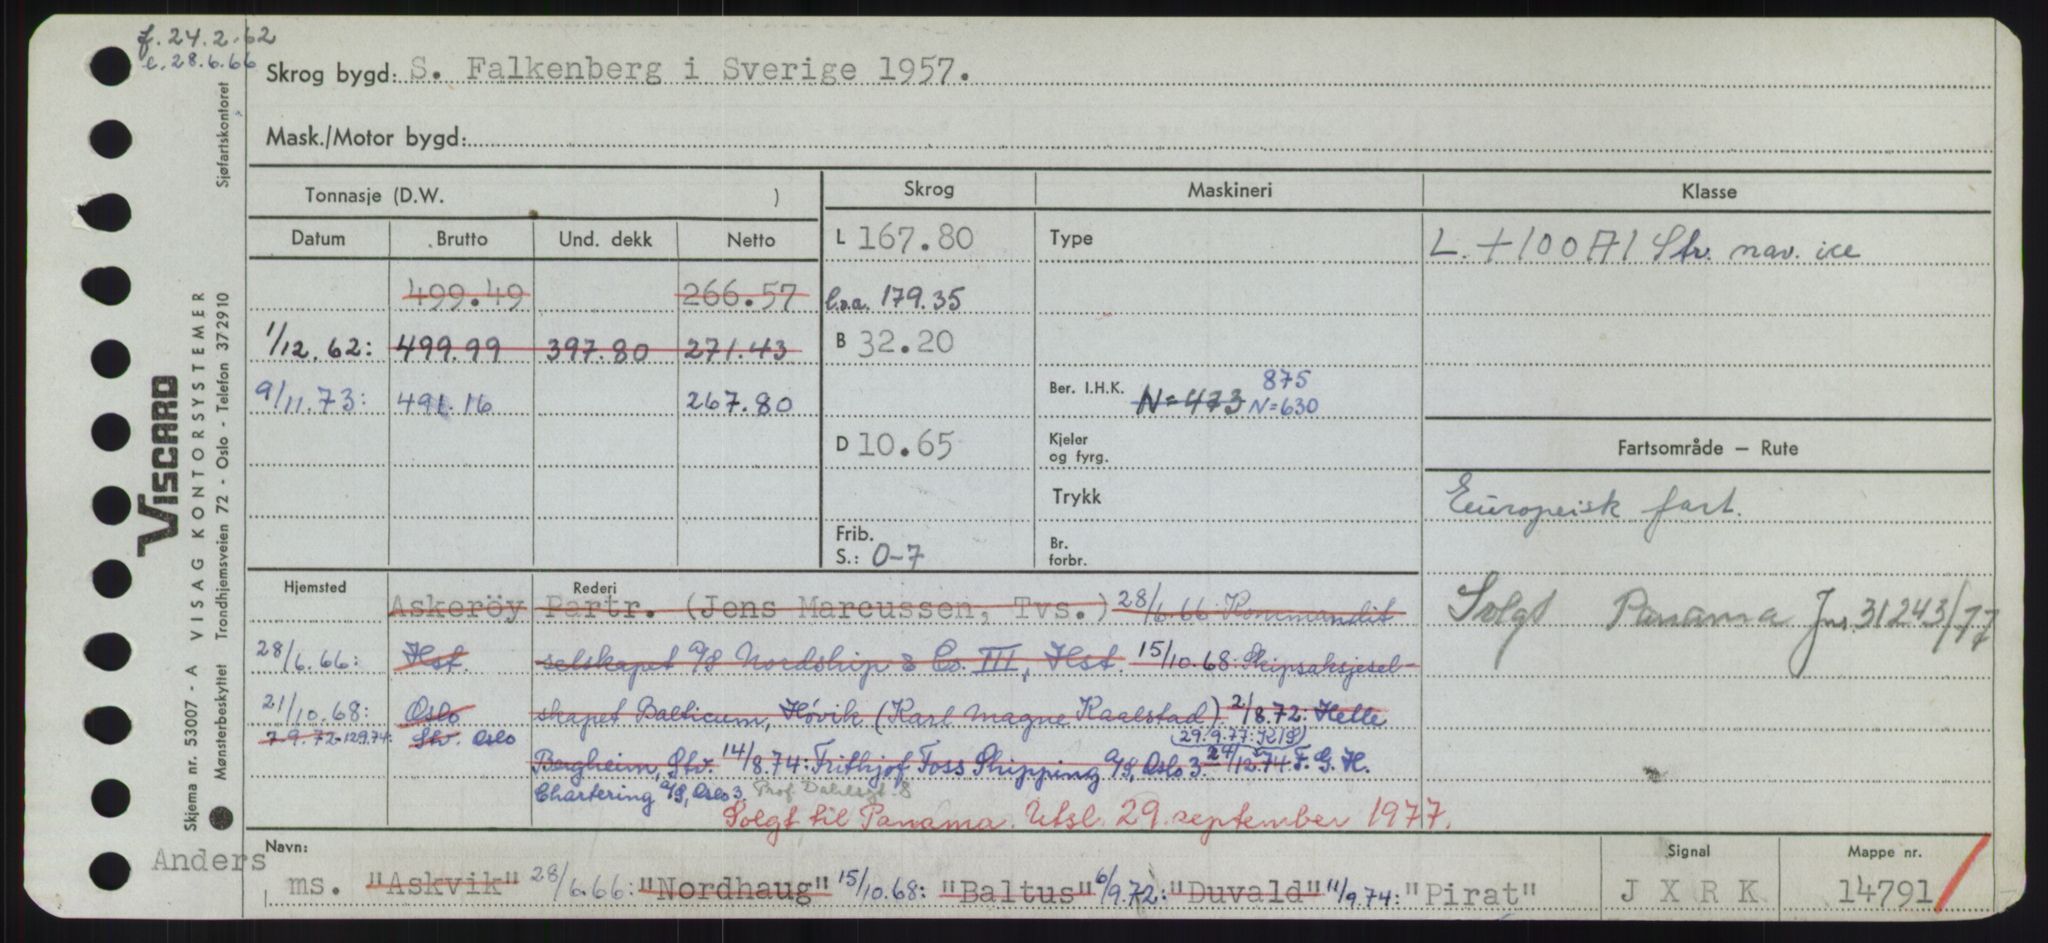 f. 24.2.62
e. 28.6.66
Skrog bygd: S. Falkenberg i Sverige 1957.
Mask./Motor bygd:
Tonnasje (D.W. )
Skrog
Maskineri
Klasse
Datum Brutto Und. dekk Netto
L 167.80
Type
L. +100A1 Str. nav. ice
499.49 266.57
l.o.a. 179.35
1/12.62: 499.99 397.80 271.43
B 32.20
9/11.73: 491.16 267.80
Ber. I.H.K. N=473 875 N=630
D 10.65
Kjeler og fyrg.
Fartsområde – Rute
Trykk
Europeisk fart.
Frib.
S.: 0-7
Br. forbr.
Hjemsted
Rederi
Askeröy Partr. (Jens Marcussen, Tvs.) 28/6.66 Kommandit
Solgt Panama Jnr. 31243/77
28/6.66: Hst. selskapet A/S Nordship & Co. III, Hst. 15/10.68: Skipsaksjesel-
21/10.68: Oslo skapet Balticum, Høvik (Karl Magne Kaalstad) 2/8.72: Helle
7.9.72 12.9.74: Stv. Oslo
29.9.77: K/S
Bergheim, Stv. 14/8.74: Frithjof Foss Shipping A/S, Oslo 3. 24/12.74 F. G. H.
Chartering A/S, Oslo 3. Prof Dahlsgt 8
Solgt til Panama. Utsl. 29. september 1977.
Navn:
Anders
ms. "Askvik" 28/6.66: "Nordhaug" 15/10.68: "Baltus" 6/9.72: "Duvald" 11/9.74: "Pirat"
Signal
J X R K
Mappe nr.
14791
VISCARD
VISAG KONTORSYSTEMER
Skjema nr. 53007 - A
Mønsterbeskyttet Trondhjemsveien 72 - Oslo - Telefon 372910
Sjøfartskontoret